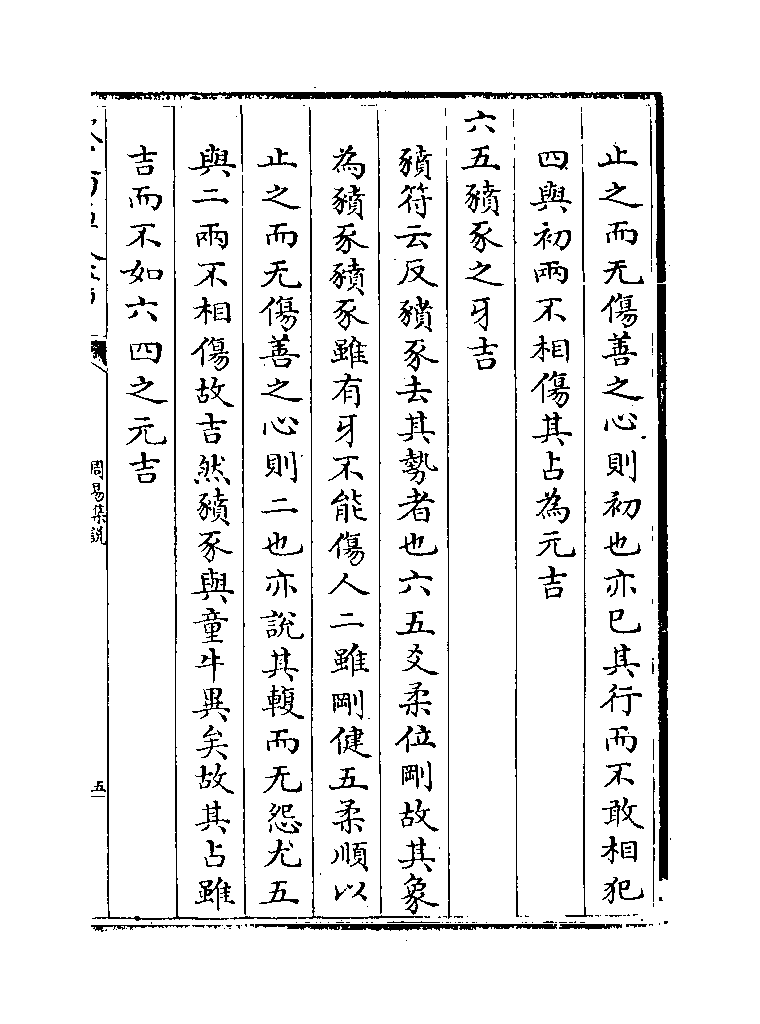 止之而无傷善之心則初也亦已其行而不敢相犯
四與初兩不相傷其占為元吉
六五豶豕之牙吉
豶符云反豶豕去其勢者也六五爻柔位剛故其象
為豶豕豶豕雖有牙不能傷人二雖剛健五柔順以
止之而无傷善之心則二也亦說其輹而无怨尤五
與二兩不相傷故吉然豶豕與童牛異矣故其占雖
吉而不如六四之元吉
周易集說
五